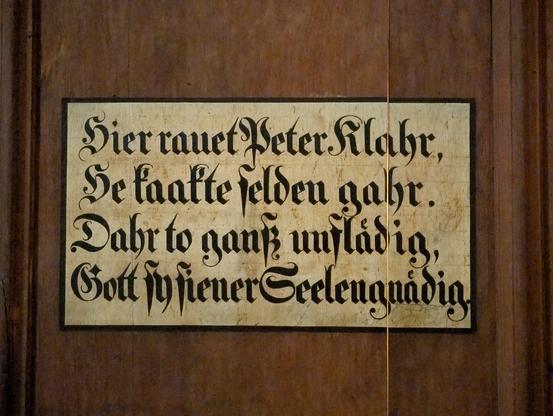 Hier rauet Peter Klahr,
He kaakte selden gahr.
Dahr to ganß unflädig,
Gott sy siener Seelen gnädig.